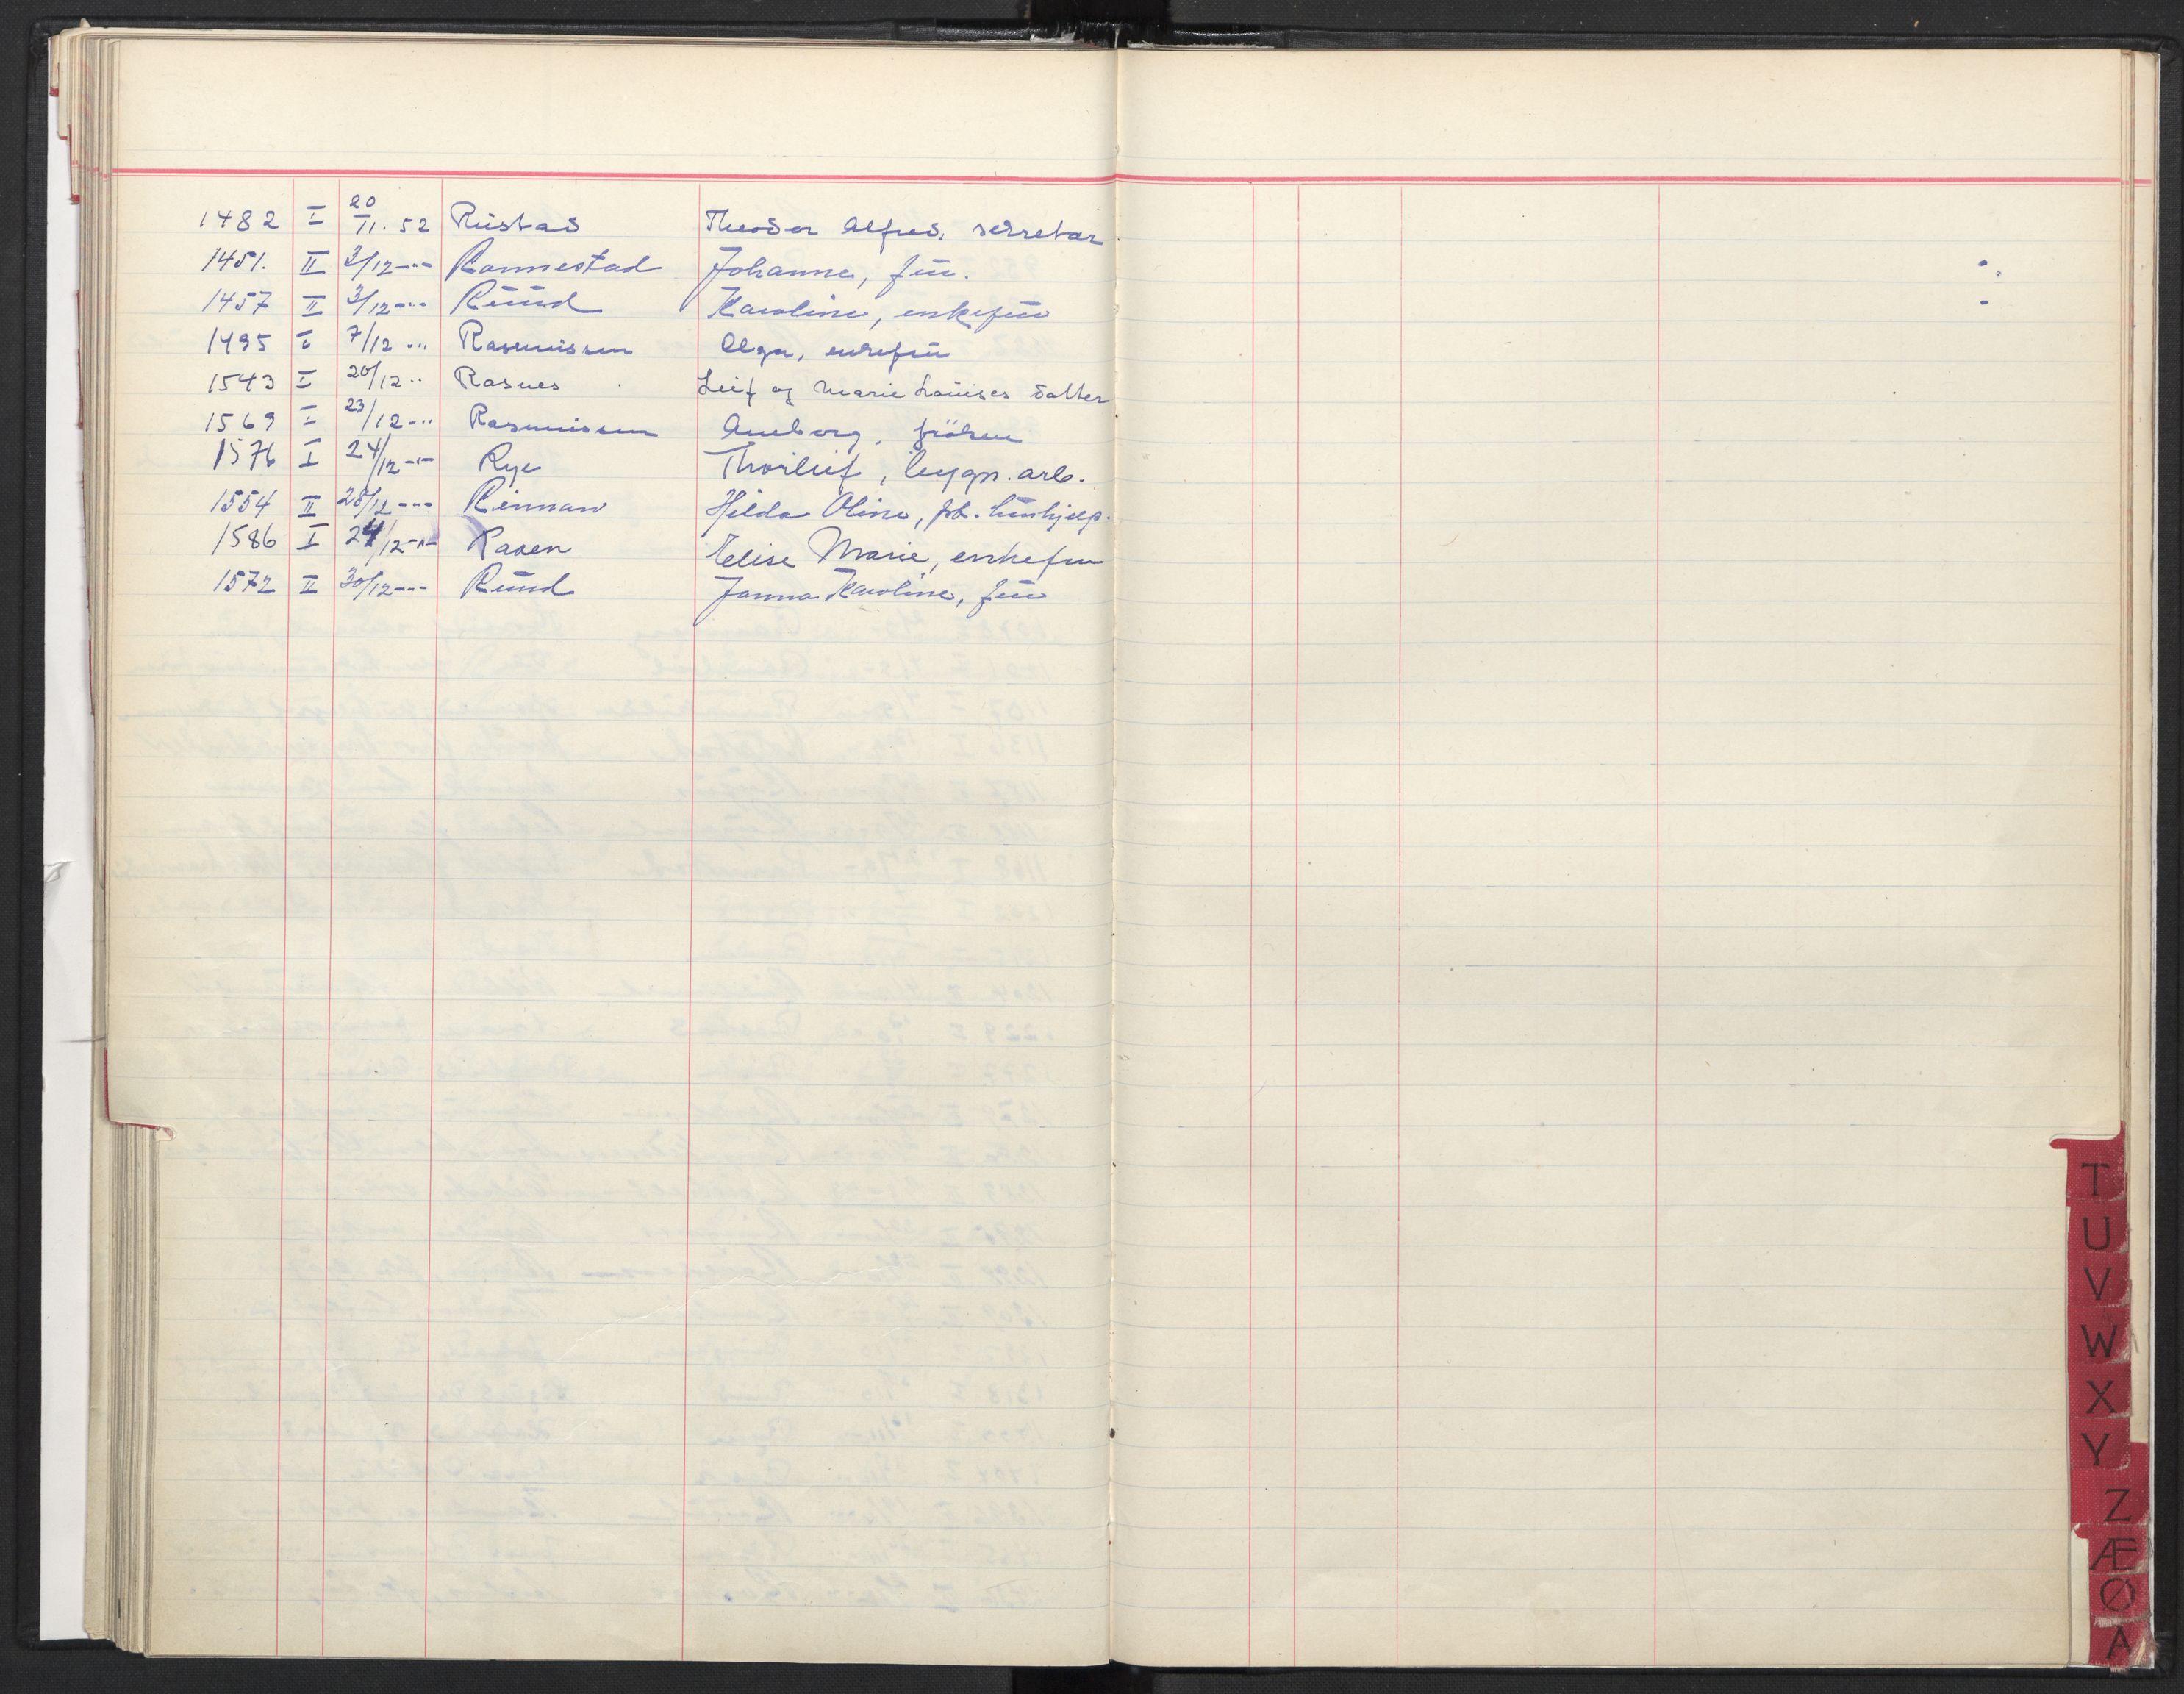 1482 I 20/11.52 Rustad Theodor Alfred, sekretær
1451. II 3/12 -"- Rannestad Johanne, fru.
1457 II 3/12 -"- Ruud Karoline, enkefru
1495 I 7/12 -"- Rasmussen Olga, enkefru
1543 I 20/12 -"- Rasnes Leif og Marie Louises datter
1569 I 23/12 -"- Rasmussen frøken
1576 I 24/12 -"- Rye Thorleif, bygn. arb.
1554 II 28/12 -"- Rennan Hilda Oline, hushjelp.
1586 I 24/12 -"- Raaen Elise Marie, enkefru
1572 II 30/12 -"- Ruud Janna Karoline, fru
T
U
V
W
X
Y
Z
Æ
Ø
A